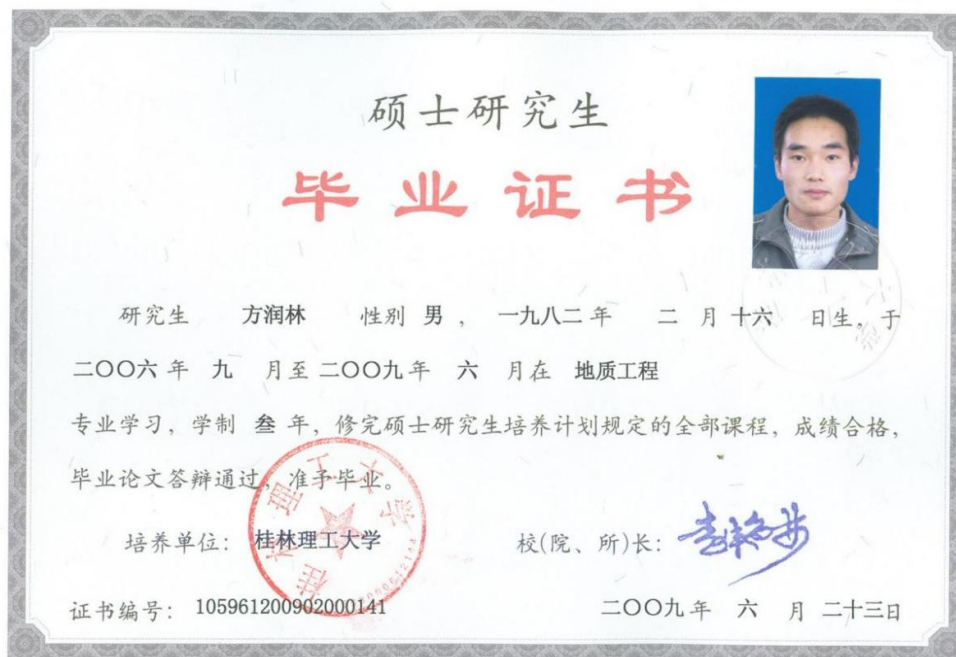 硕士研究生
毕业证书
研究生 方润林 性别 男 , 一九八二 年 二 月 十六 日生。于
二〇〇六 年 九 月至 二〇〇九 年 六 月在 地质工程
专业学习, 学制 叁 年, 修完硕士研究生培养计划规定的全部课程, 成绩合格,
毕业论文答辩通过, 准予毕业。
培养单位: 桂林理工大学 校(院、所)长:
证书编号: 105961200902000141 二〇〇九 年 六 月 二十三日
桂林理工大学